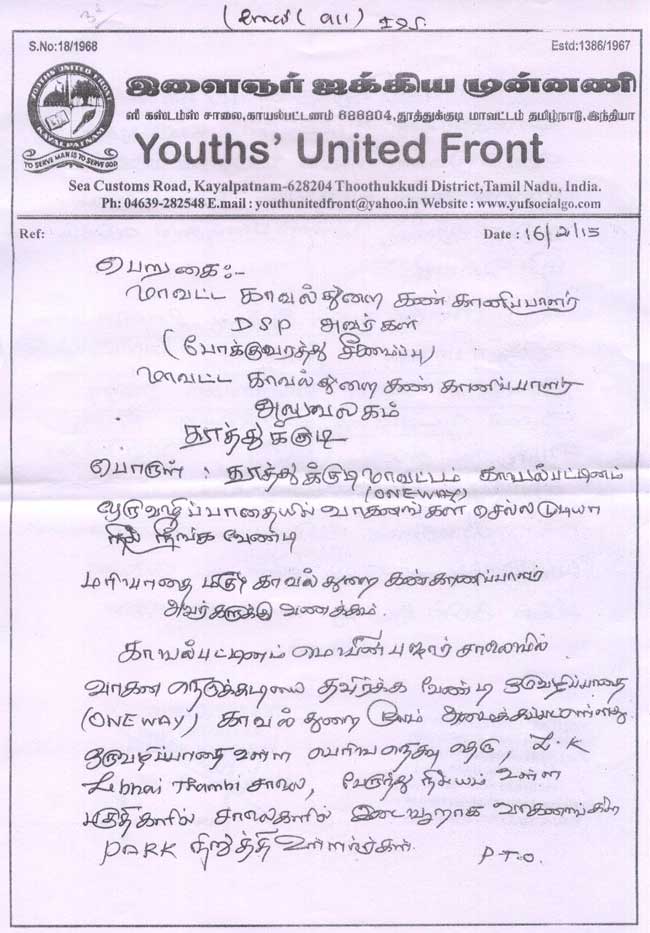 (email (all)
S.No:18/1968
Estd:1386/1967
YOUTHS UNITED FRONT
KAYALPATNAM
TO SERVE MAN IS TO SERVE GOD
இளைஞர் ஐக்கிய முன்னணி
ஸீ கஸ்டம்ஸ் சாலை,காயல்பட்டணம் 688804,தூத்துக்குடி மாவட்டம் தமிழ்நாடு,இந்தியா
Youths' United Front
Sea Customs Road, Kayalpatnam-628204 Thoothukkudi District,Tamil Nadu, India.
Ph: 04639-282548 E.mail : youthunitedfront@yahoo.in Website : www.yufsocialgo.com
Ref:
Date : 16/2/15
பெறுகை:-
மாவட்ட காவல்துறை கண்காணிப்பாளர்
DSP அவர்கள்
(போக்குவரத்து சீரமைப்பு)
மாவட்ட காவல்துறை கண்காணிப்பாளர்
அலுவலகம்
தூத்துக்குடி
பொருள் : தூத்துக்குடி மாவட்டம் காயல்பட்டினம்
(ONEWAY)
ஒருவழிப்பாதையில் வாகனங்கள் செல்ல முடியா
நிலை நீங்க வேண்டி
மரியாதைமிகு காவல்துறை கண்காணிப்பாளர்
அவர்களுக்கு வணக்கம்.
காயல்பட்டினம் மெயின் பஜார் சாலையில்
வாகன நெருக்கடியை தவிர்க்க வேண்டி ஒருவழிப்பாதை
(ONEWAY) காவல்துறை மூலம் அமைக்கப்பட்டுள்ளது.
ஒருவழிப்பாதை உள்ள பெரிய நெசவு தெரு, L.K
Lebhai Thambi சாலை, பேருந்து நிலையம் உள்ள
பகுதிகளில் சாலைகளில் இடையூறாக வாகனங்களை
PARK நிறுத்தி உள்ளார்கள்.
P.T.O.